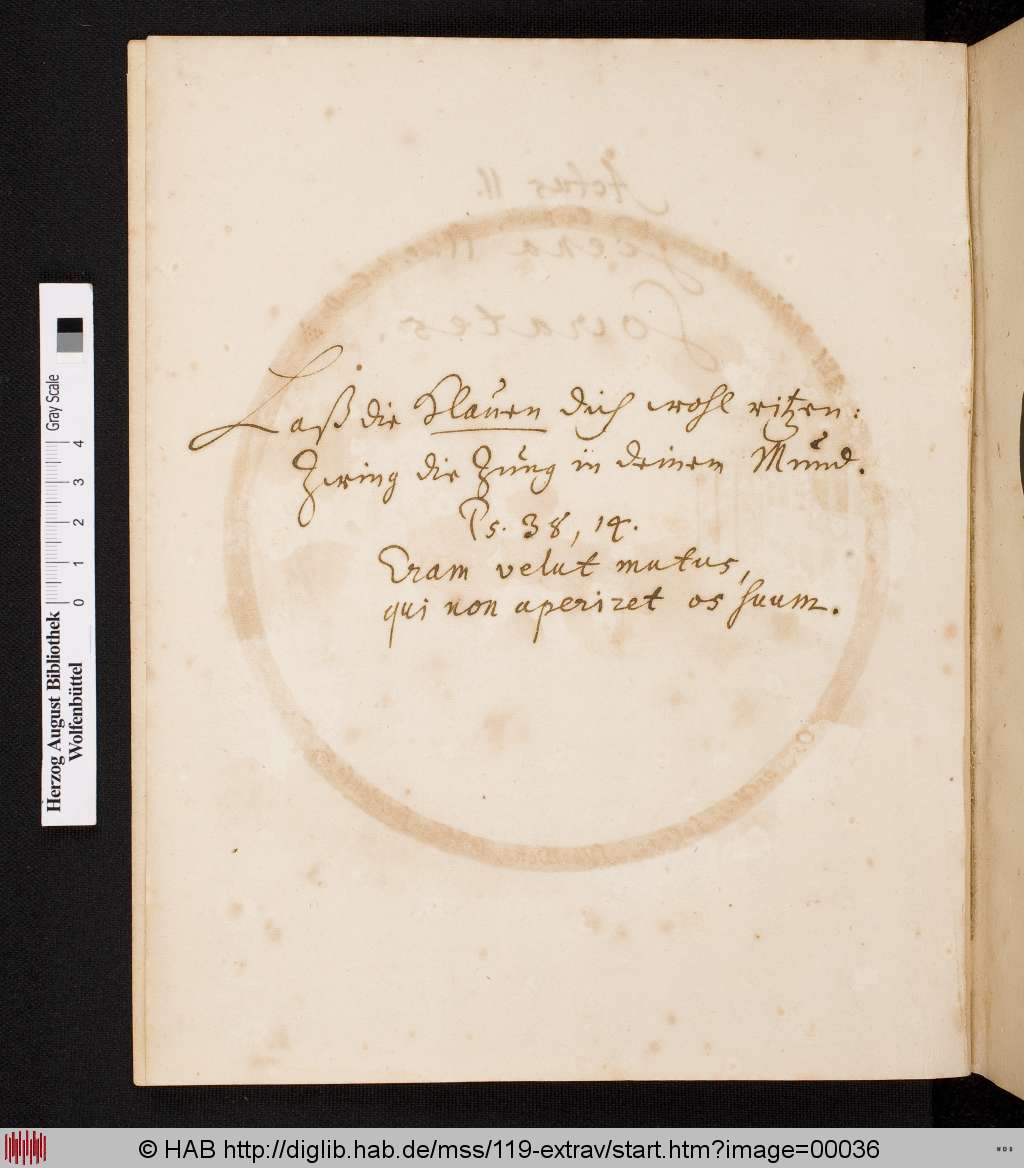 Actus II.
Scena III.
Socrates.
Laß die Klauen dich wohl ritzen:
Zwing die Zung in deinem Mund.
Ps. 38, 14.
Eram velut mutus,
qui non aperiret os suum.
Gray Scale
4
3
2
1
0
Herzog August Bibliothek
Wolfenbüttel
© HAB http://diglib.hab.de/mss/119-extrav/start.htm?image=00036